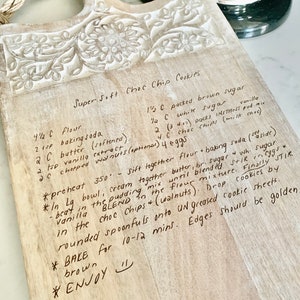 Super Soft Choc Chip Cookies
4 ½ C flour
2 tsp baking soda
2 C butter (softened)
2 tsp vanilla extract
2 C chopped walnuts (optional)
1 ½ C packed brown sugar
½ C white sugar
4 C choc chips
4 eggs
* preheat 350° Sift together flour + baking soda (set aside)
* In Lg bowl, cream together butter, br sugar + wh sugar
beat in the pudding mix until blended, stir in eggs +
vanilla. BLEND in the flour mixture. Finally stir
in the choc chips + (walnuts). Drop cookies by
rounded spoonfuls onto UNgreased cookie sheets
* BAKE for 10-12 mins. Edges should be golden
brown
* ENJOY